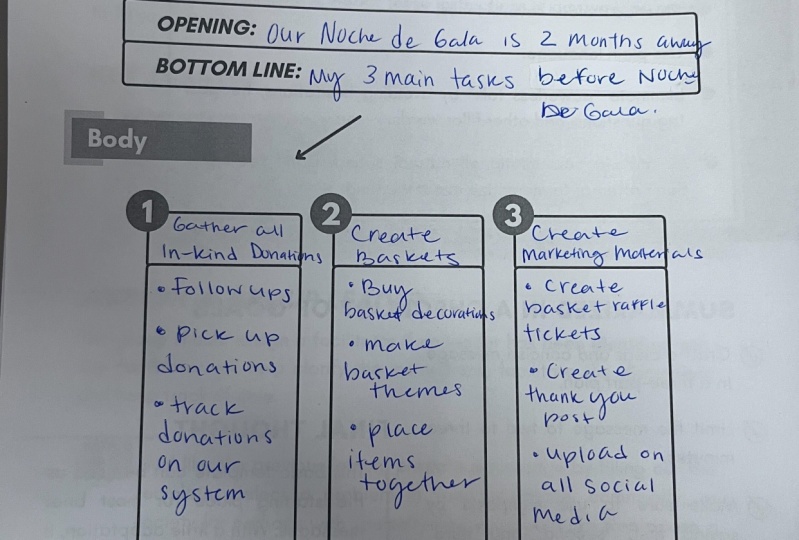 OPENING: Our Noche de Gala is 2 months away
BOTTOM LINE: My 3 main tasks before Noche
De Gala.
Body
1
Gather all
In-kind Donations
• Follow ups
• pick up
donations
• track
donations
on our
system
2
Create
Baskets
• Buy
basket decorations
• make
basket
themes
• place
items
together
3
Create
Marketing Materials
• Create
basket raffle
tickets
• Create
thank you
post
• upload on
all social
media